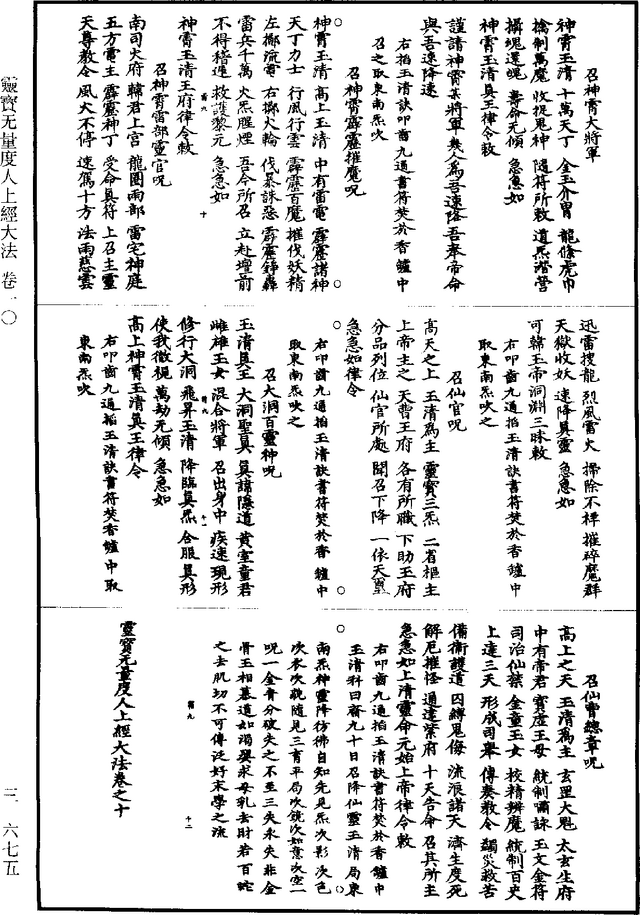 召神霄大將軍
神霄玉清　十萬天丁　金玉介冑　龍絛虎巾
擒制萬魔　收捉鬼神　隨符所敕　道炁潛營
攝魂還魄　壽命无傾　急急如
神霄玉清真王律令敕
謹請神霄某將軍幾人爲吾速降吾奉帝命
與吾速降速
右掐玉清訣叩齒九通書符焚於香鑪中
召之取東南炁吹
召神霄霹靂摧魔呪
神霄玉清　高上玉清　中有雷電　霹靂諸神
天丁力士　行風行雲　霹靂百魔　摧伐妖精
左擲流電　右擲火輪　伐暴誅惡　霹靂錚轟
雷兵千萬　火炁騰煙　吾今所召　立赴壇前
不得稽遲　救護黎元　急急如
神霄玉清王府律令敕
召神霄雷部靈官呪
南司火府　韓君上宮　龍團雨部　雷宅神庭
五方電主　霹靂神丁　受命真符　上召主靈
天尊教令　風火不停　速駕十方　法雨慈雲
迅雷捜龍　烈風雷火　掃除不祥　摧碎魔群
天獄收妖　速降真靈　急急如
可韓玉帝洞淵三昧敕
右叩齒九通掐玉清訣書符焚於香鑪中
取東南炁吹之
召仙官呪
高天之上　玉清爲主　靈寶三炁　二省樞主
上帝主之　天曹王府　各有所職　下助王府
分品列位　仙官所處　聞召下降　一依天憲
急急如律令
右叩齒九通掐玉清訣書符焚於香鑪中
取東南炁吹之
召大洞百靈神呪
玉清真王　大洞聖真　真諱隱道　黃室童君
雌雄玉女　混合將軍　召出身中　疾速現形
修行大洞　飛昇玉清　降臨真炁　合服真形
使我微視　萬劫无傾　急急如
高上神霄玉清真王律令
右叩齒九通掐玉清訣書符焚香鑪中取
東南炁吹
召仙曹總章呪
高上之天　玉清爲主　玄罡大魁　太玄生府
中有帝君　寶虛王母　統制嘯詠　玉文金符
司治仙禁　金童玉女　校精辨魔　統制百史
上達三天　形威司舉　傳奏教令　蠲災救苦
備衞護道　因縛鬼侮　流派諸天　濟生度死
解厄摧怪　通達紫府　十天告命　召其所主
急急如上清靈命元始上帝律令敕
右叩齒九通掐玉清訣書符焚於香鑪中
玉清科曰齋九十日召降仙靈玉清局東
南炁神靈降彷彿自知先見炁次影次色
次衣次貌隨見三育平局次鏡次如意次空一
呪一金青分破失之不至三失永失非金
骨玉相慕道如渴嬰求母乳去財若百蛇
之去肌切不可傳泛好末學之流
靈寶无量度人上經大法卷之十
靈寶无量度人上經大法　卷一〇
三·六七五